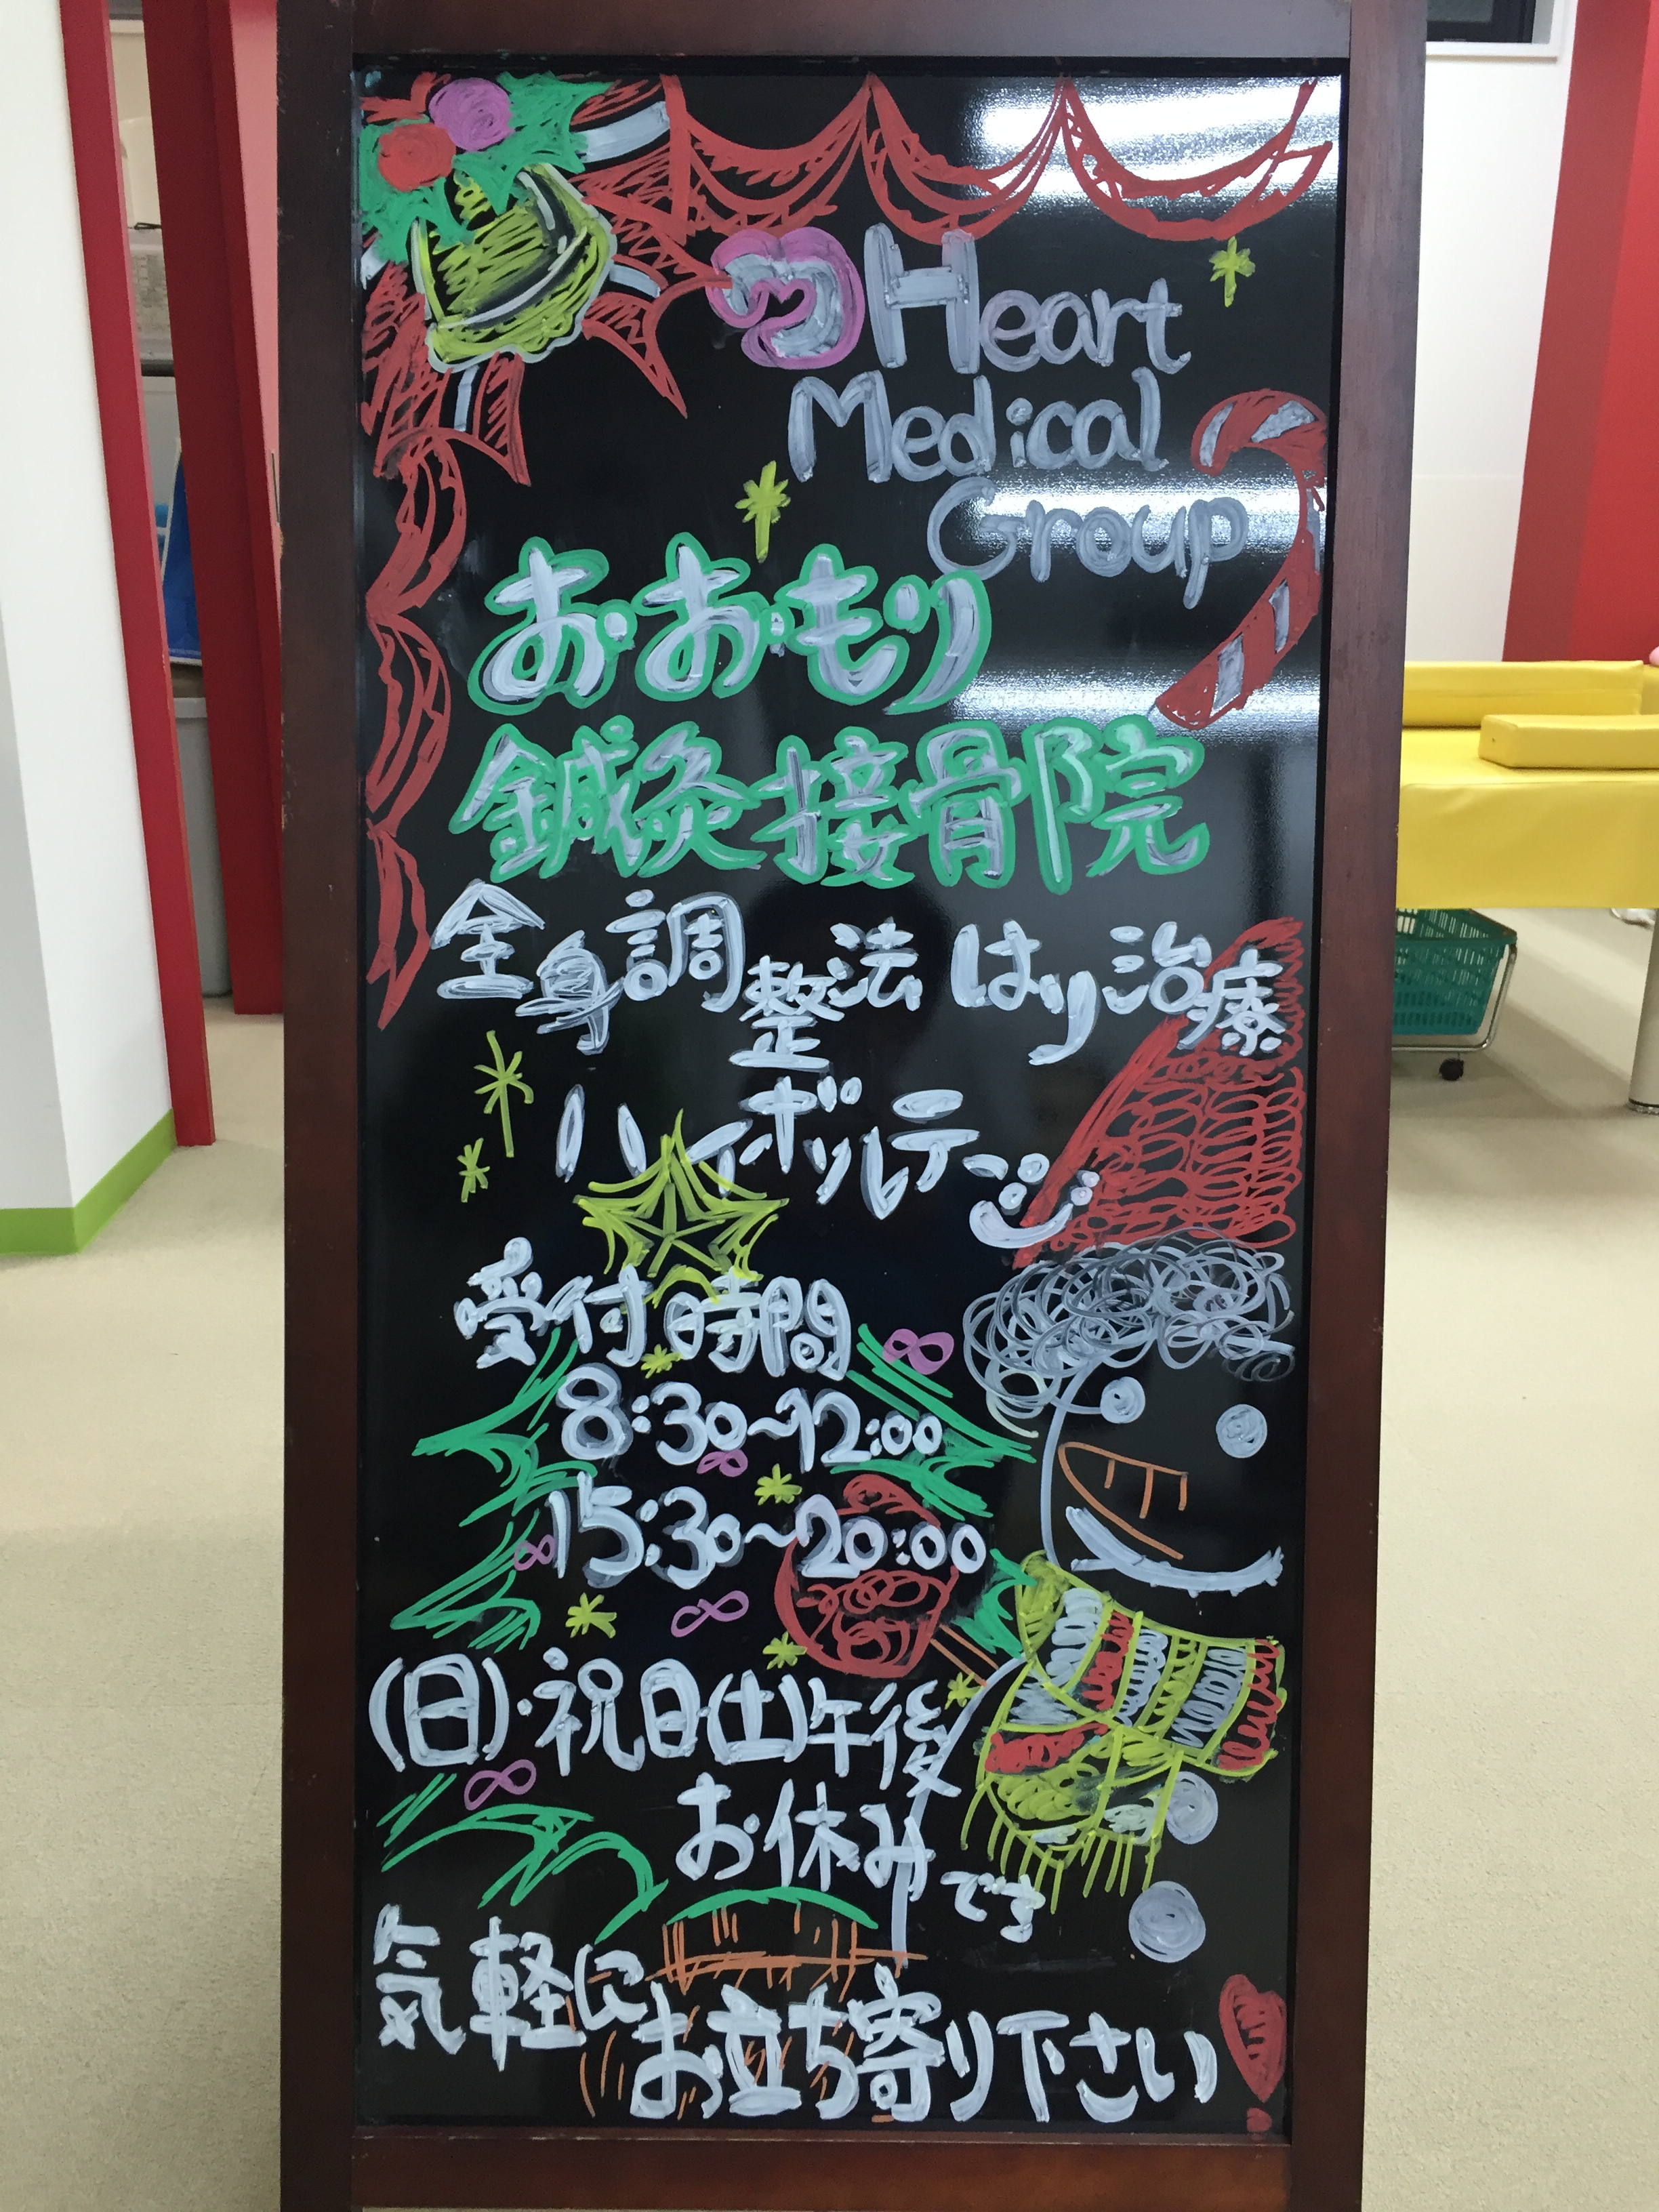 Heart
Medical
Group
おおもり
鍼灸接骨院
全身調整法 はり治療
ハイボルテージ
受付時間
8:30~12:00
15:30~20:00
(日)・祝日(土)午後
お休みです
気軽に
お立ち寄り下さい